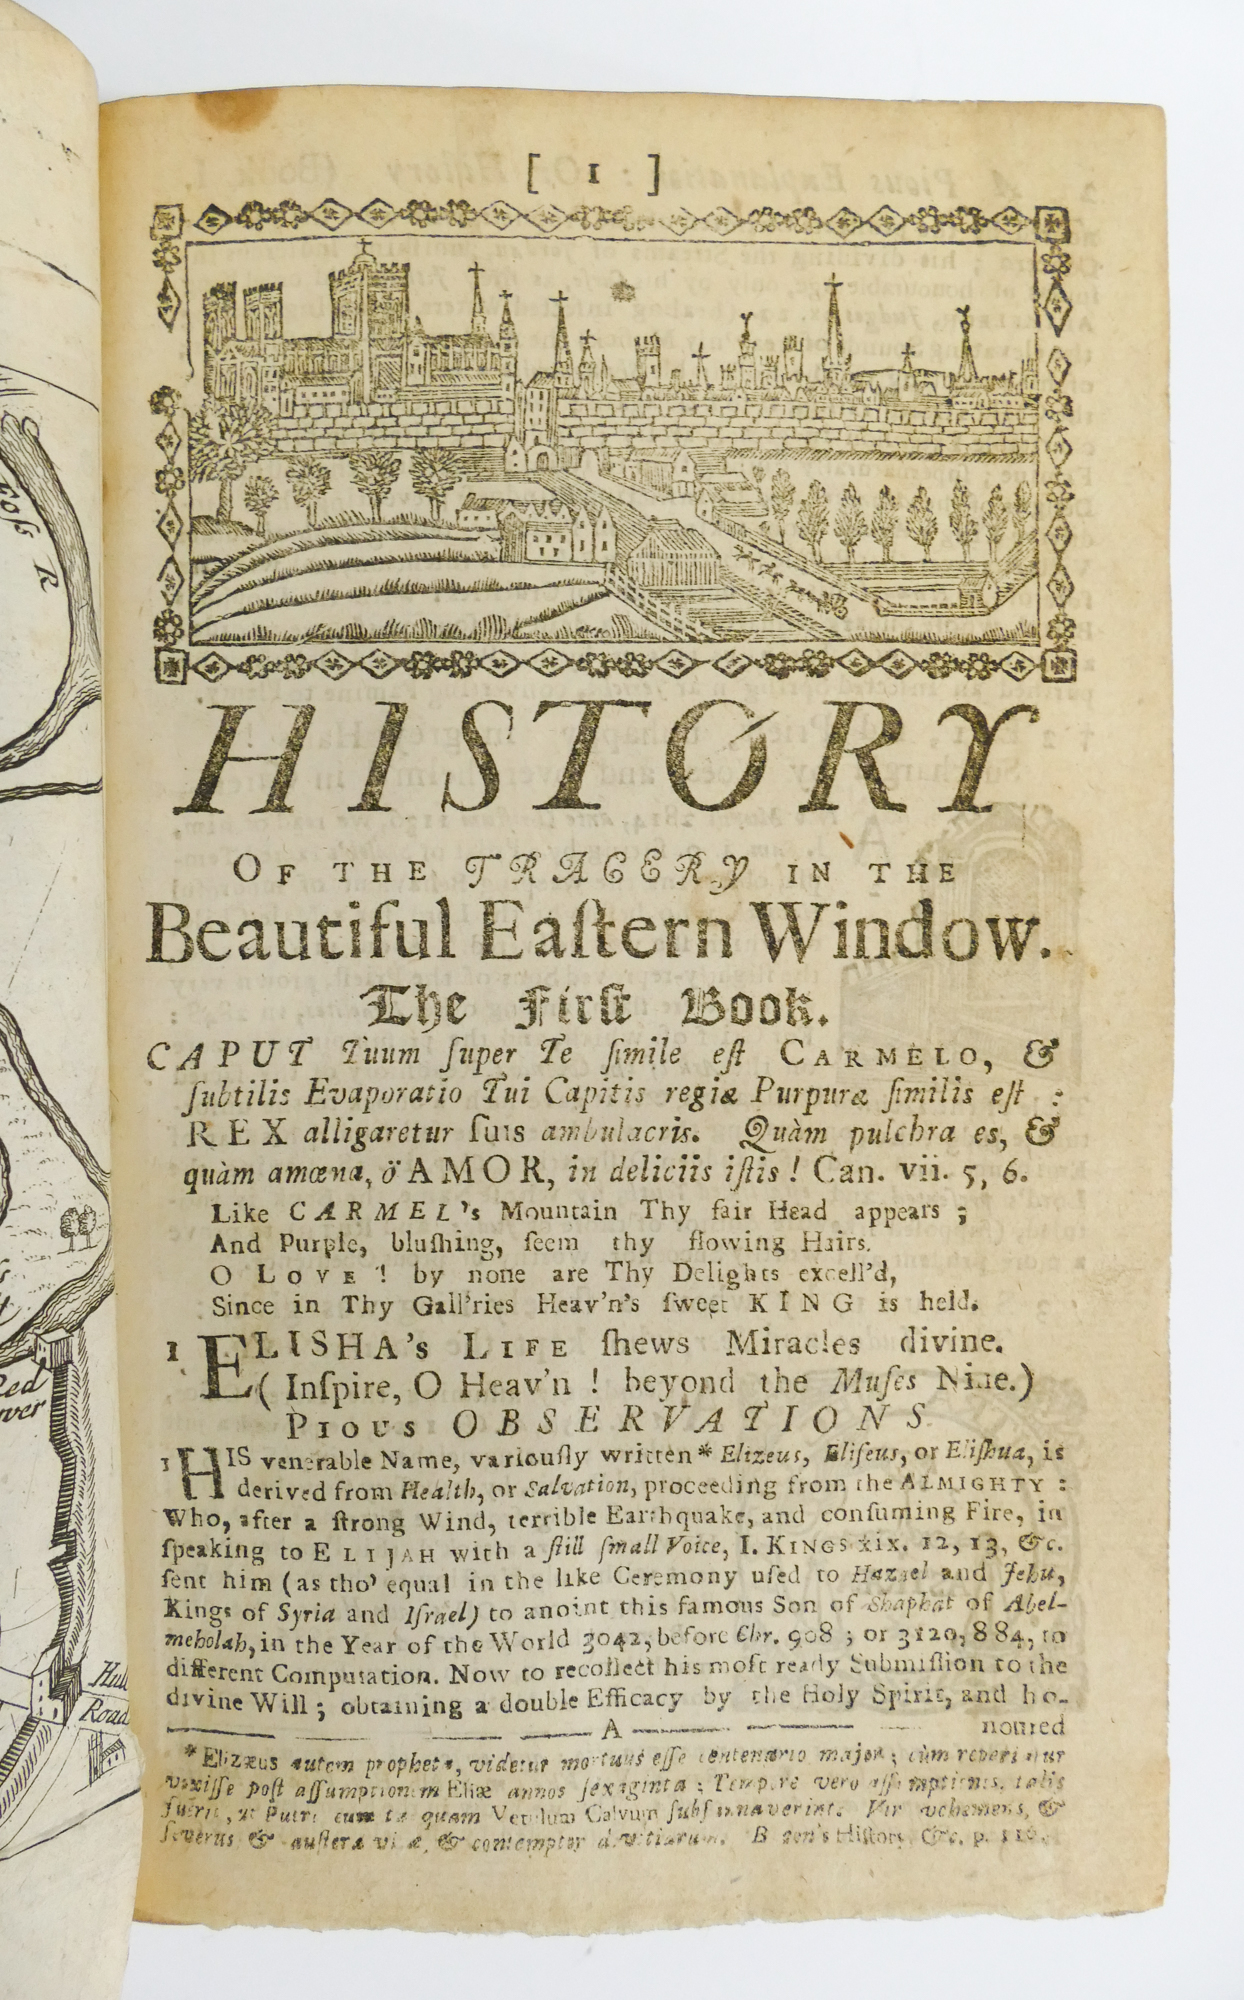 [ 1 ]
HISTORY
OF THE TRACERY IN THE
Beautiful Eaſtern Window.
The Firſt Book.
CAPUT Tuum ſuper Te ſimile eſt CARMELO, &
ſubtilis Evaporatio Tui Capitis regiæ Purpuræ ſimilis eſt :
REX alligaretur ſuis ambulacris. Quàm pulchra es, &
quàm amœna, ö AMOR, in deliciis iſtis ! Can. vii. 5, 6.
Like CARMEL's Mountain Thy fair Head appears ;
And Purple, bluſhing, ſeem thy flowing Hairs.
O LOVE ! by none are Thy Delights excell'd,
Since in Thy Gall'ries Heav'n's ſweet KING is held.
1 ELISHA's LIFE ſhews Miracles divine.
( Inſpire, O Heav'n ! beyond the Muſes Nine.)
PIOUS OBSERVATIONS
1 HIS venerable Name, variouſly written * Elizeus, Eliſeus, or Eliſhua, is
derived from Health, or Salvation, proceeding from the ALMIGHTY :
Who, after a ſtrong Wind, terrible Earthquake, and conſuming Fire, in
ſpeaking to ELIJAH with a ſtill ſmall Voice, I. KINGS xix. 12, 13, &c.
ſent him (as tho' equal in the like Ceremony uſed to Hazael and Jehu,
Kings of Syria and Iſrael) to anoint this famous Son of Shaphat of Abel-
meholah, in the Year of the World 3042, before Chr. 908 ; or 3120, 884, to
different Computation. Now to recollect his moſt ready Submiſſion to the
divine Will ; obtaining a double Efficacy by the Holy Spirit, and ho-
A noured
* Elizæus autem propheta, videtur mortuus eſſe centenario major ; cùm reperiatur
vixiſſe poſt aſſumptionem Eliæ annos ſexaginta : Tempore vero aſſumptionis, talis
fuerit, ut Pueri eum quam Vetulum Calvum ſubſannaverint. Vir vehemens, &
ſeverus & auſteræ vitæ, & contemptor divitiarum. History, &c. p. 110.
Foſs R
Red
Hull
Road